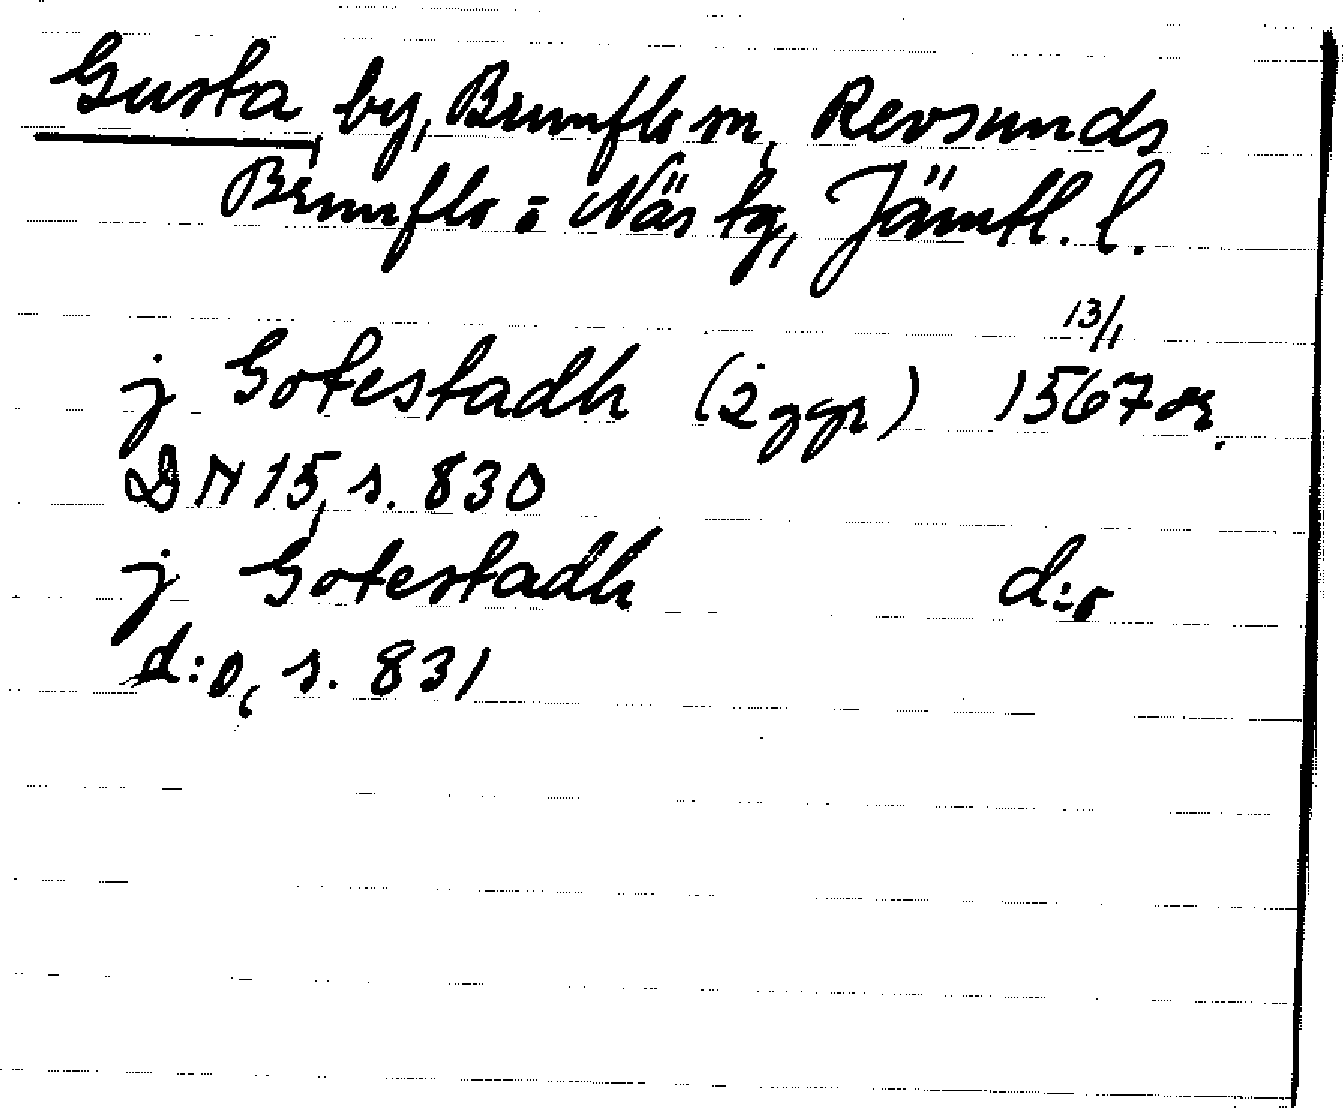 Gusta by, Brunflo sn, Revsunds
Brunflo o Näs tg, Jämtl. l.
13/1
j Gotestadh (2 ggr) 1567 or.
DN 15, s. 830
j Gotestadh d:o
d:o, s. 831